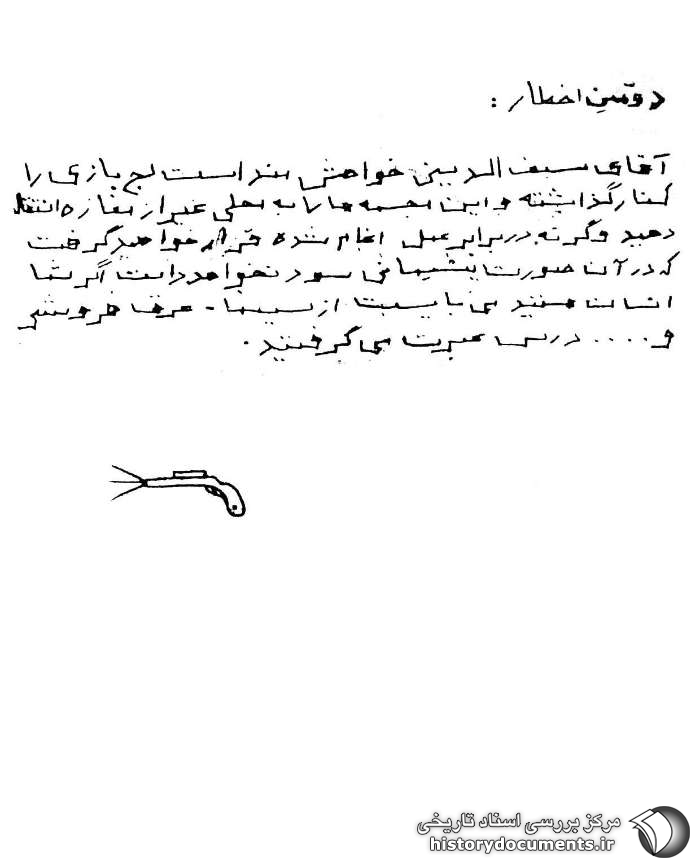 دومین اخطار :
آقای سیف الدینی خواهش مند است لج بازی را
کنار گذاشته و این مجسمه ها را به محلی غیر از مغازه انتقال
دهید وگرنه در برابر عمل انجام شده قرار خواهید گرفت
که در آن صورت پشیمانی سود نخواهد داشت اگر شما
انسان هستید می بایست از سینما - عرق فروشی
و .... درس عبرت می گرفتید .
مرکز بررسی اسناد تاریخی
historydocuments.ir